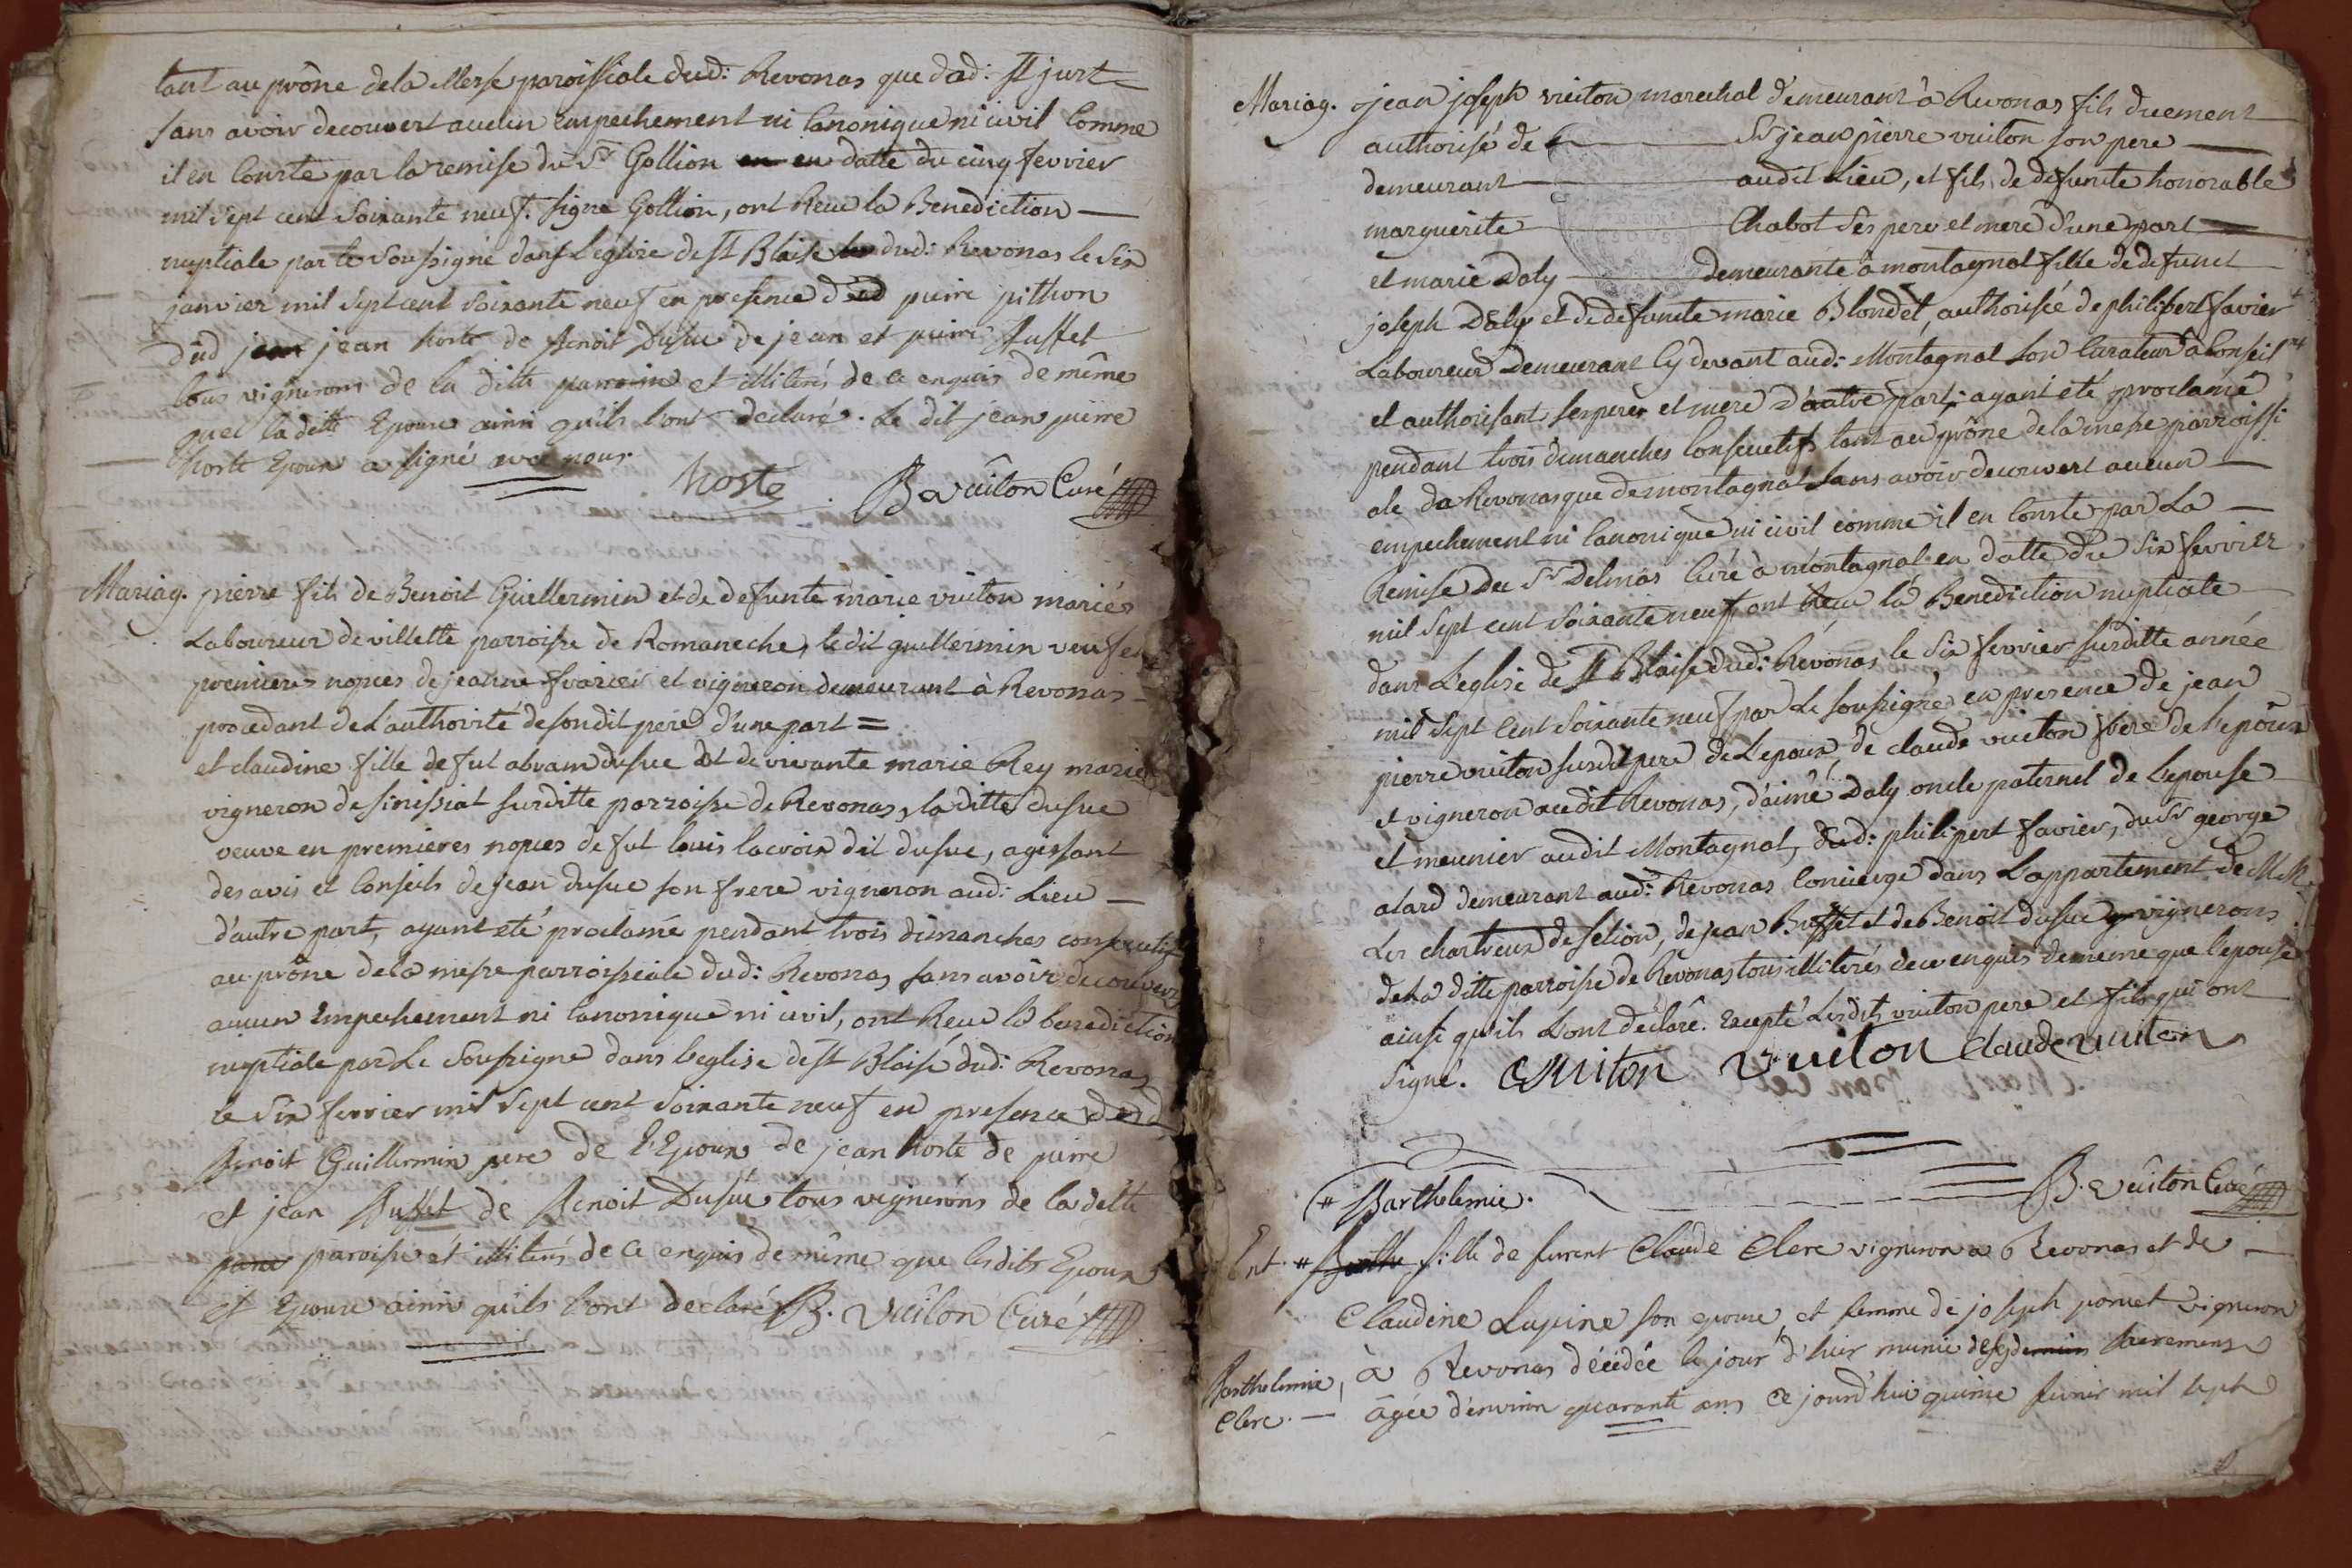 tant au prône de la Messe paroissiale dud: Revonas que dad: St just
sans avoir decouvert aucun Empechement ni Canonique ni civil Comme
il en Conste par la remise du Sr Gollion en datte du cinq fevrier
mil sept cent soixante neuf. signé Gollion, ont Reçu la Benediction
nuptiale par le soussigné dans l'eglise de St Blaise dud: Revonas le six
janvier mil sept cent soixante neuf en presence dud pierre pithon
dud jean jean hoste de Benoit Dusuc de jean et pierre Buffet
tous vignerons de la ditte et illiterés de ce enquis de même
que la ditte Epouse ainsi qu'ils l'ont declaré. Le dit jean pierre
hoste Epoux a signé avec nous.
hoste B. vuiton Curé
Mariag. pierre fils de Benoit Guillermin et de defunte marie vuiton mariés
Laboureur de villette parroisse de Romaneche, le dit guillermin veuf en
premieres nopces de jeanne et vigneron demeurant à Revonas
procedant de L'authorité de son dit pere d'une part =
et claudine fille de fut abram dusuc et de vivante marie Rey mariés
vigneron de sinissiat surditte parroisse de Revonas, la ditte dusuc
veuve en premieres nopces de fut louis lacroix dit dusuc, agissant
des avis et Conseils de jean dusuc son frere vigneron aud: Lieu
d'autre part, ayant eté proclamé pendant trois dimanches consecutifs
au prône de la messe parroissiale dud: Revonas sans avoir decouvert
aucun Empechement ni Canonique ni civil, ont Reçu la benediction
nuptiale par Le Soussigné dans l'eglise de St Blaise dud: Revonas
le Six fevrier mil sept cent soixante neuf en presence dud
Benoit Guillermin pere de l'Epoux de jean hoste de pierre
et jean Buffet de Benoit Dusuc tous vignerons de la ditte
paroisse et illiterés de ce enquis de même que lesdits Epoux
et Epouse ainsi qu'ils l'ont declaré. B. Vuiton Curé
Mariag. jean joseph vuiton marechal demeurant à Revonas fils duement
authorisé de Sr jean pierre vuiton son pere
demeurant audit Lieu, et fils de defunte honorable
marguerite Chabot ses pere et mere d'une part
et marie Daly demeurante à montagnat fille de defunct
joseph Daly et de defuncte marie Blondet, authorisée de philipert favier
Laboureur Demeurant Cy devant aud: Montagnat son Curateur à Conseil
et authorisant ses pere et mere d'autre part; ayant été proclamé
pendant trois dimanches Consecutifs tant au prône de la messe parroissi
ale de Revonas que de montagnat sans avoir decouvert aucun
empechement ni Canonique ni civil comme il en Conste par La
Remise du Sr Delmas Curé à montagnat en datte du six fevrier
mil sept cent soixante neuf ont Reçu la Benediction nuptiale
dans L'eglise de St Blaise dud: Revonas le six fevrier surditte année
mil sept Cent soixante neuf par Le soussigné en presence de jean
pierre vuiton susdit pere de L'epoux, de claude vuiton frere de l'epoux
et vigneron audit Revonas, d'aimé Daly oncle paternel de L'epouse
et meunier audit Montagnat, dud: philipert favier, du Sr george
alard demeurant aud: Revonas Concierge dans L'appartement de MM
Les chartreux de selion, de jean Buffet et de Benoit dusuc vignerons
de la ditte parroisse de Revonas tous illiterés de ce enquis de meme que l'epouse
ainsi qu'ils L'ont declaré. Excepté Lesdits vuiton pere et fils qui ont
signé. Vuiton Vuiton Claude vuiton
B. vuiton Curé
# Barthelemie.
Ent. # Barthe fille de furent Claude Clerc vigneron a Revonas et de
Claudine Lupine son epouse, et femme de joseph poncet vigneron
à Revonas décédée le jour d'hier munie des sacremens
Barthelemie Clerc. âgée d'environ quarante ans ce jourd'hui quinze fevrier mil sept